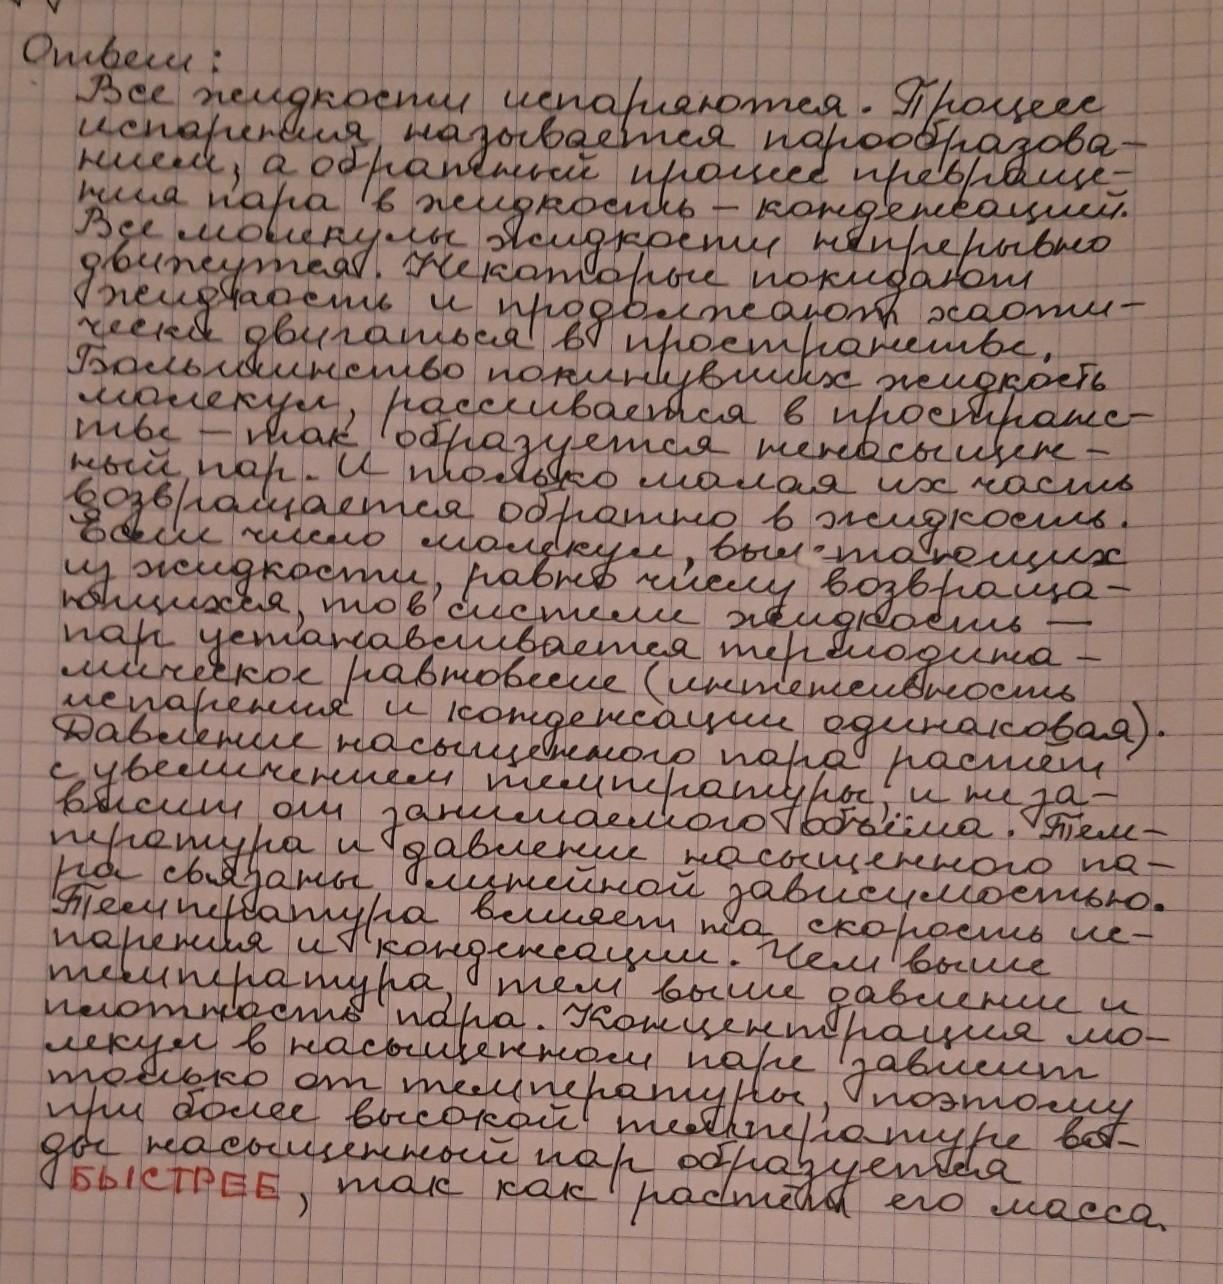 Ответ:
Все жидкости испаряются. Процесс
испарения называется парообразова-
нием, а обратный процесс превраще-
ния пара в жидкость - конденсацией.
Все молекулы жидкости непрерывно
движутся. Некоторые покидают
жидкость и продолжают хаоти-
чески двигаться в пространстве.
Большинство покинувших жидкость
молекул, рассеивается в пространс-
тве - так образуется ненасыщен-
ный пар. И только малая их часть
возвращается обратно в жидкость.
Если число молекул, вылетающих
из жидкости, равно числу возвраща-
ющихся, то в системе жидкость —
пар устанавливается термодина-
мическое равновесие (интенсивность
испарения и конденсации одинаковая).
Давление насыщенного пара растёт
с увеличением температуры, и не за-
висит от занимаемого объёма. Тем-
пература и давление насыщенного па-
ра связаны линейной зависимостью.
Температура влияет на скорость ис-
парения и конденсации. Чем выше
температура, тем выше давление и
плотность пара. Концентрация мо-
лекул в насыщенном паре зависит
только от температуры, поэтому
при более высокой температуре во-
ды насыщенный пар образуется
БЫСТРЕЕ, так как растёт его масса.